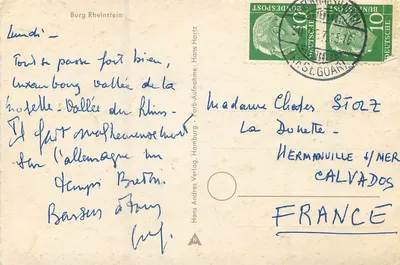 Burg Rheinstein
Lundi -
Tout se passe fort bien,
Luxembourg vallée de la
Moselle - Vallée du Rhin -
Il fait malheureusement
sur l'allemagne un
temps Breton.
Baisers à tous
Hans Andres Verlag, Hamburg Farb-Aufnahme: Hans Hartz
10
DEUTSCHE
BUNDESPOST
10
ST. GOAR
Madame Charles STOLZ
La Dunette -
HERMANVILLE s/MER
CALVADOS
FRANCE